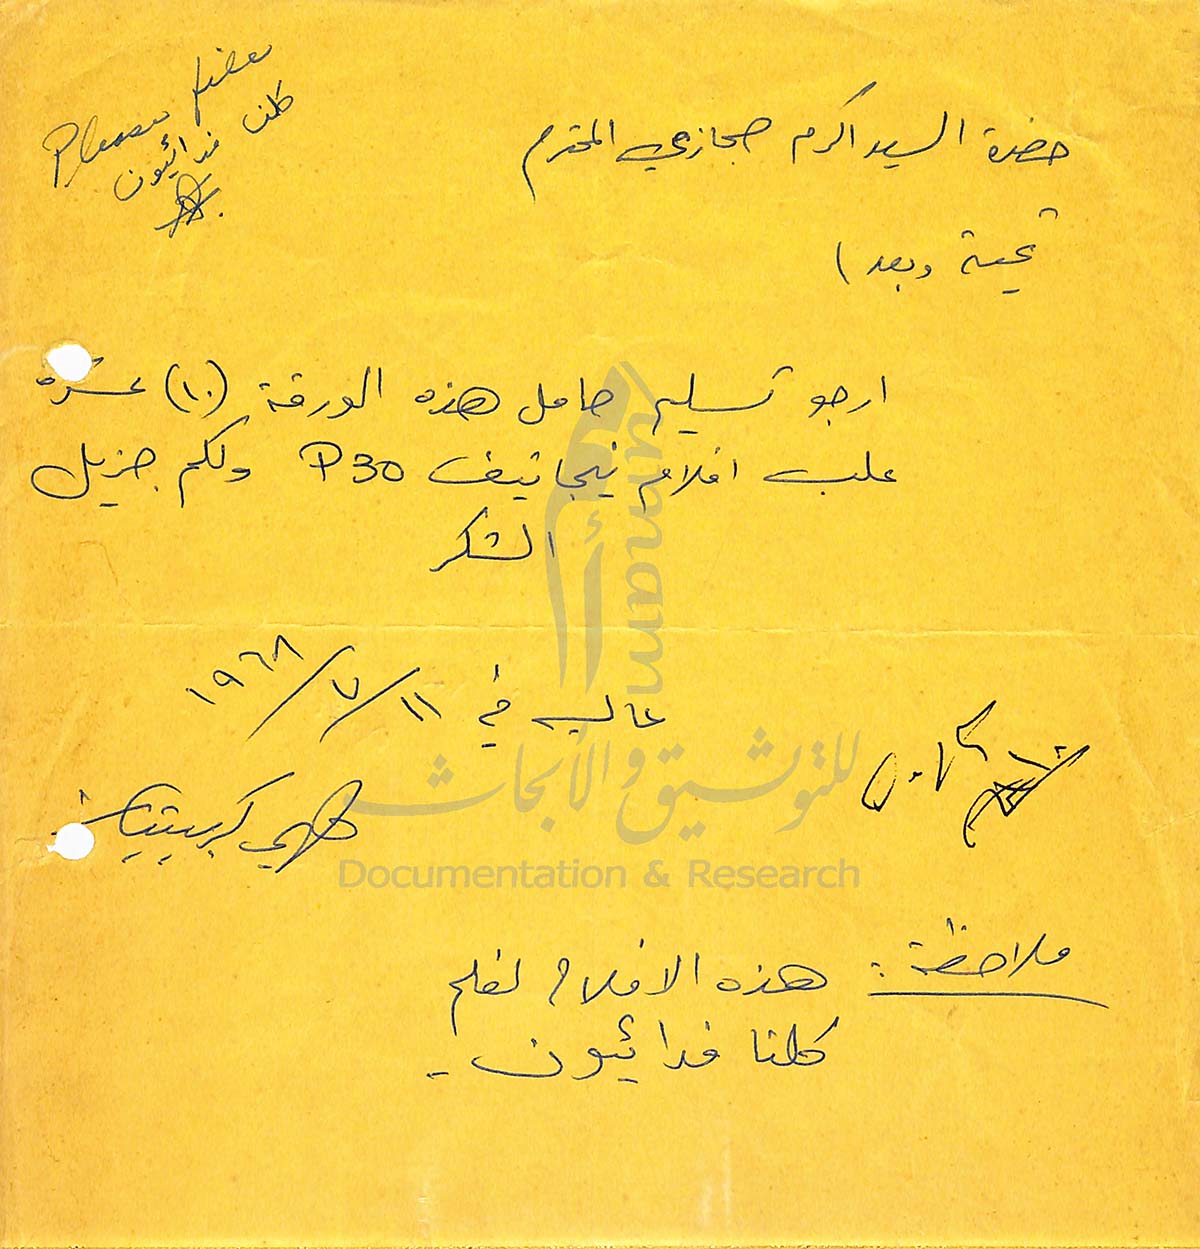 Please file
كلنا
فدائيون
حضرة السيد اكرم حجازي المحترم
تحية وبعد ،
ارجو تسليم حامل هذه الورقة (١٠) عشرة
علب افلام نيجاتيف P30 ولكم جزيل
الشكر
عاليه في ١١/٧/١٩٦٨
كريبتيان
ملاحظة :
هذه الافلام لفلم
كلنا فدائيون -
Umam
أمم
للتوثيق والأبحاث
Documentation & Research